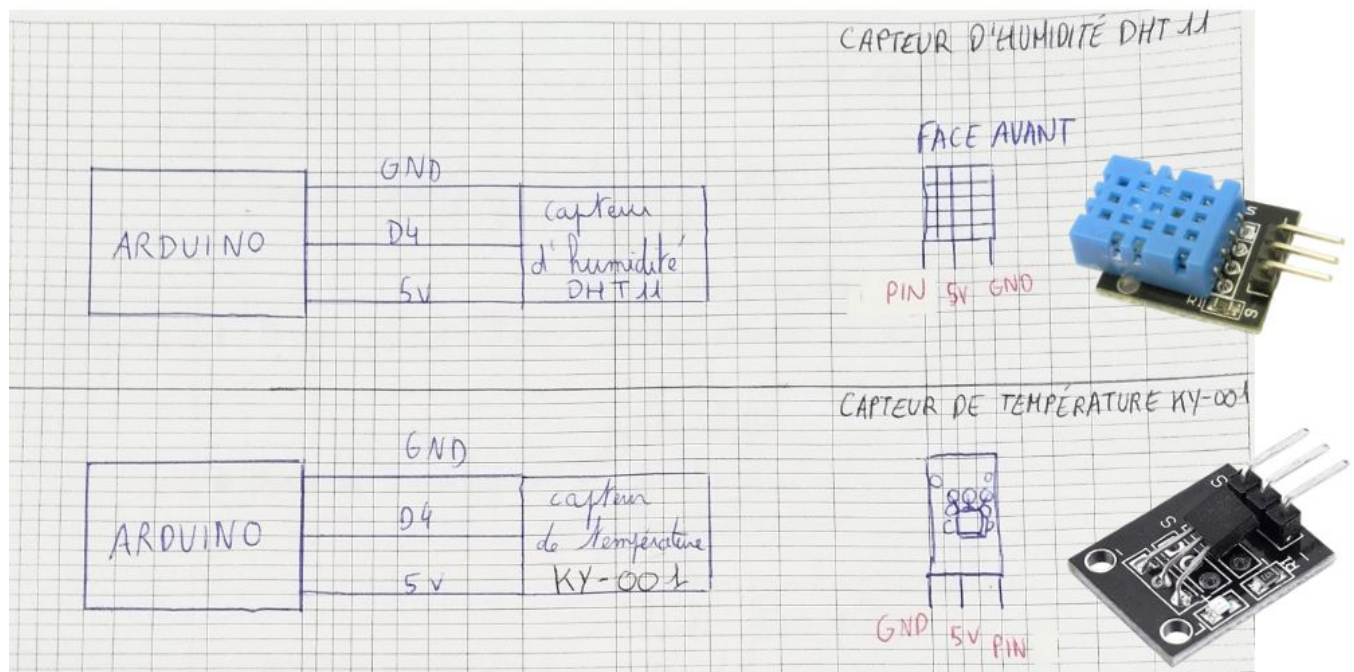 CAPTEUR D'HUMIDITÉ DHT 11
FACE AVANT
GND
ARDUINO
D4
5V
capteur
d'humidité
DHT 11
PIN 5V GND
S
R1
S
CAPTEUR DE TEMPÉRATURE KY-001
GND
ARDUINO
D4
5V
capteur
de température
KY-001
GND 5V PIN
S
S
R1